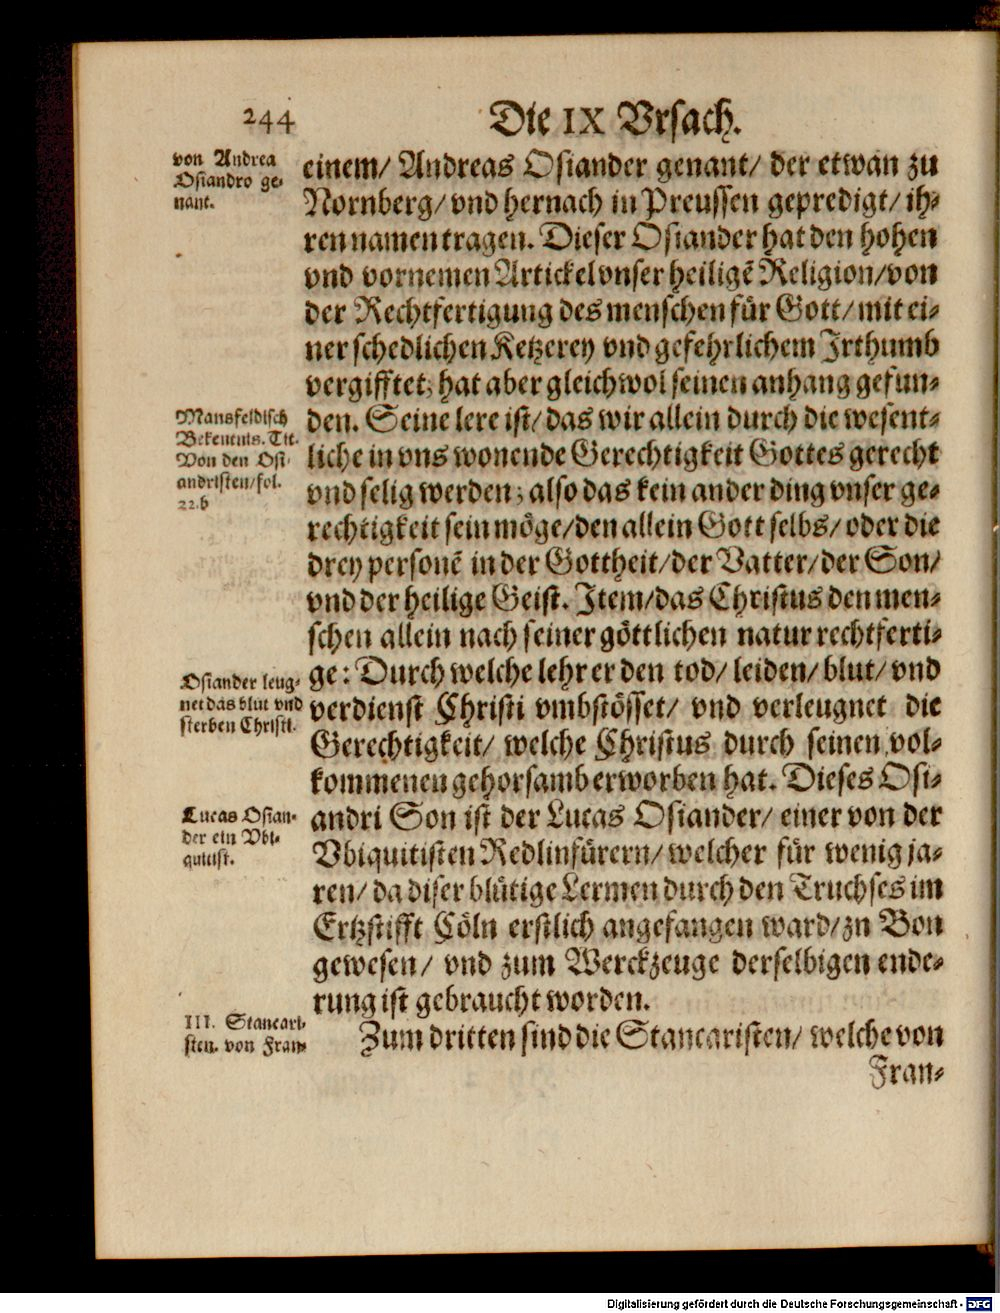 244
Die IX Vrsach.
von Andrea
Osiandro ge-
nant.
einem/ Andreas Osiander genant/ der etwan zu
Nornberg/ vnd hernach in Preussen gepredigt/ ih-
ren namen tragen. Dieser Osiander hat den hohen
vnd vornemen Artickel vnser heiligẽ Religion/ von
der Rechtfertigung des menschen für Gott/ mit ei-
ner schedlichen Ketzerey vnd gefehrlichem Irthumb
vergifftet; hat aber gleichwol seinen anhang gefun-
Mansfeldisch
Bekentnis. Tit.
Von den Osi-
andristen/ fol.
22.b
den. Seine lere ist/ das wir allein durch die wesent-
liche in vns wonende Gerechtigkeit Gottes gerecht
vnd selig werden; also das kein ander ding vnser ge-
rechtigkeit sein möge/ den allein Gott selbs/ oder die
drey personẽ in der Gottheit/ der Vatter/ der Son/
vnd der heilige Geist. Item/ das Christus den men-
schen allein nach seiner göttlichen natur rechtferti-
Osiander leug-
net das blut vnd
sterben Christi.
ge: Durch welche lehr er den tod/ leiden/ blut/ vnd
verdienst Christi vmbstösset/ vnd verleugnet die
Gerechtigkeit/ welche Christus durch seinen vol-
kommenen gehorsamb erworben hat. Dieses Osi-
Lucas Osian-
der ein Vbi-
quitist.
andri Son ist der Lucas Osiander/ einer von der
Vbiquitisten Redlinfürern/ welcher für wenig ja-
ren/ da diser blütige Lermen durch den Truchses im
Ertzstifft Cöln erstlich angefangen ward/ zu Bon
gewesen/ vnd zum Werckzeuge derselbigen ende-
rung ist gebraucht worden.
III. Stancari-
sten. von Fran-
Zum dritten sind die Stancaristen/ welche von
Fran-
Digitalisierung gefördert durch die Deutsche Forschungsgemeinschaft - DFG